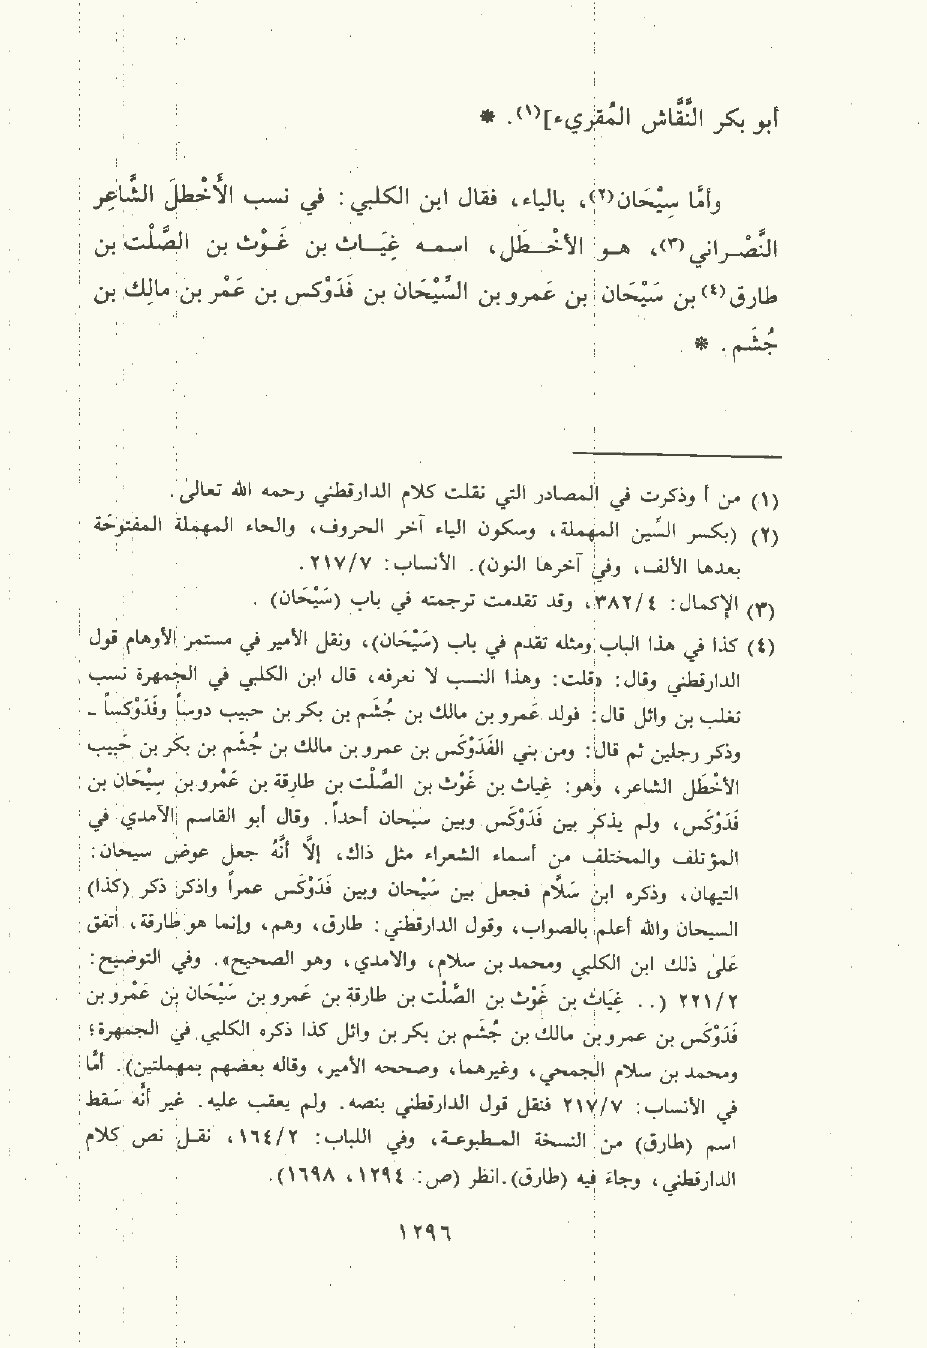 أبو بكر النَّقَّاش المُقرِيء](١). *
وأمّا سِيْحَان(٢)، بالياء، فقال ابن الكلبي: في نسب الأَخْطلَ الشَّاعِر
النَّصْـرانـي(٣)، هـو الأخْـطَل، اسـمـه غِيَـاث بن غَـوْث بن الصَّلْت بن
طارق(٤) بن سَيْحَان بن عَمرو بن السَّيْحَان بن فَدَوْكس بن عَمْر بن مالِك بن
جُشَم. *
(١) من أ وذكرت في المصادر التي نقلت كلام الدارقطني رحمه الله تعالى.
(٢) (بكسر السِّين المهملة، وسكون الياء آخر الحروف، والحاء المهملة المفتوحَة
بعدها الألف، وفي آخرها النون). الأنساب: ٢١٧/٧.
(٣) الإكمال: ٣٨٢/٤، وقد تقدمت ترجمته في باب (سَيْحَان).
(٤) كذا في هذا الباب ومثله تقدم في باب (سَيْحَان)، ونقل الأمير في مستمر الأوهام قول
الدارقطني وقال: «قلت: وهذا النسب لا نعرفه، قال ابن الكلبي في الجمهرة نسب
تغلب بن وائل قال: فولد عَمرو بن مالك بن جُشم بن بكر بن حبيب دوساً وفَدَوْكساً -
وذكر رجلين ثم قال: ومن بني الفَدَوْكَس بن عمرو بن مالك بن جُشَم بن بكر بن حَبيب
الأخْطَل الشاعر، وهو: غِياث بن غَوْث بن الصَّلْت بن طارِقة بن عَمْرو بن سِيْحَان بن
فَدَوْكَس، ولم يذكر بين فَدَوْكَس وبين سيحان أحداً. وقال أبو القاسم الآمدي في
المؤتلف والمختلف من أسماء الشعراء مثل ذاك، إلّا أنَّهُ جعل عوض سيحان:
التيهان، وذكره ابن سَلّام فجعل بين سَيْحان وبين فَدَوْكَس عمراً واذكر ذكر (كذا)
السيحان والله أعلم بالصواب، وقول الدارقطني: طارق، وهم، وإنما هو طارقة، أتفق
عَلى ذلك ابن الكلبي ومحمد بن سلام، والامدي، وهو الصحيح». وفي التوضيح:
٢٢١/٢ (.. غِيَاث بن غَوْث بن الصَّلْت بن طارقة بن عمرو بن سَيْحَان بن عَمْرو بن
فَدَوْكَس بن عمرو بن مالك بن جُشَم بن بكر بن وائل كذا ذكره الكلبي في الجمهرة؛
ومحمد بن سلام الجمحي، وغيرهما، وصححه الأمير، وقاله بعضهم بمهملتين). أمّا
في الأنساب: ٢١٧/٧ فنقل قول الدارقطني بنصه. ولم يعقب عليه. غير أنَّه سَقط
اسم (طارق) من النسخة المـطبوعـة، وفي اللباب: ١٦٤/٢، نقـل نص كلام
الدارقطني، وجاءَ فيه (طارق). انظر (ص: ١٢٩٤، ١٦٩٨).
١٢٩٦